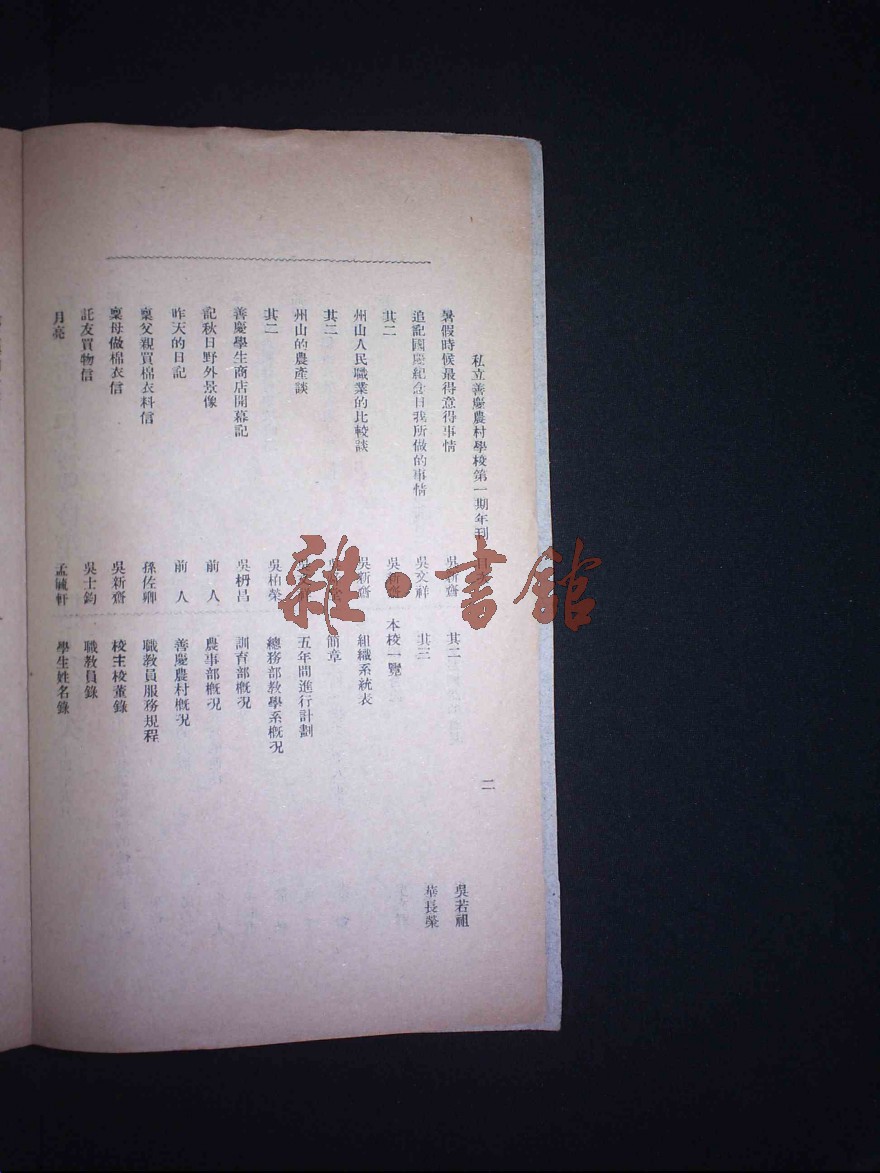 私立善慶農村學校第一期年刊
二
暑假時候最得意得事情 吳新齋
追記國慶紀念日我所做的事情 吳文祥
其二 吳新齋
州山人民職業的比較談 吳新齋
其二
州山的農產談
其二 吳柏榮
善慶學生商店開幕記 吳枬昌
記秋日野外景像 前人
昨天的日記 前人
稟父親買棉衣料信 孫佐卿
稟母做棉衣信 吳新齋
託友買物信 吳士鈞
月亮 孟毓軒
其二 吳若祖
其三 華長榮
本校一覽
組織系統表
簡章
五年間進行計劃
總務部教學系概況
訓育部概況
農事部概況
善慶農村概況
職教員服務規程
校主校董錄
職教員錄
學生姓名錄
雜·書館